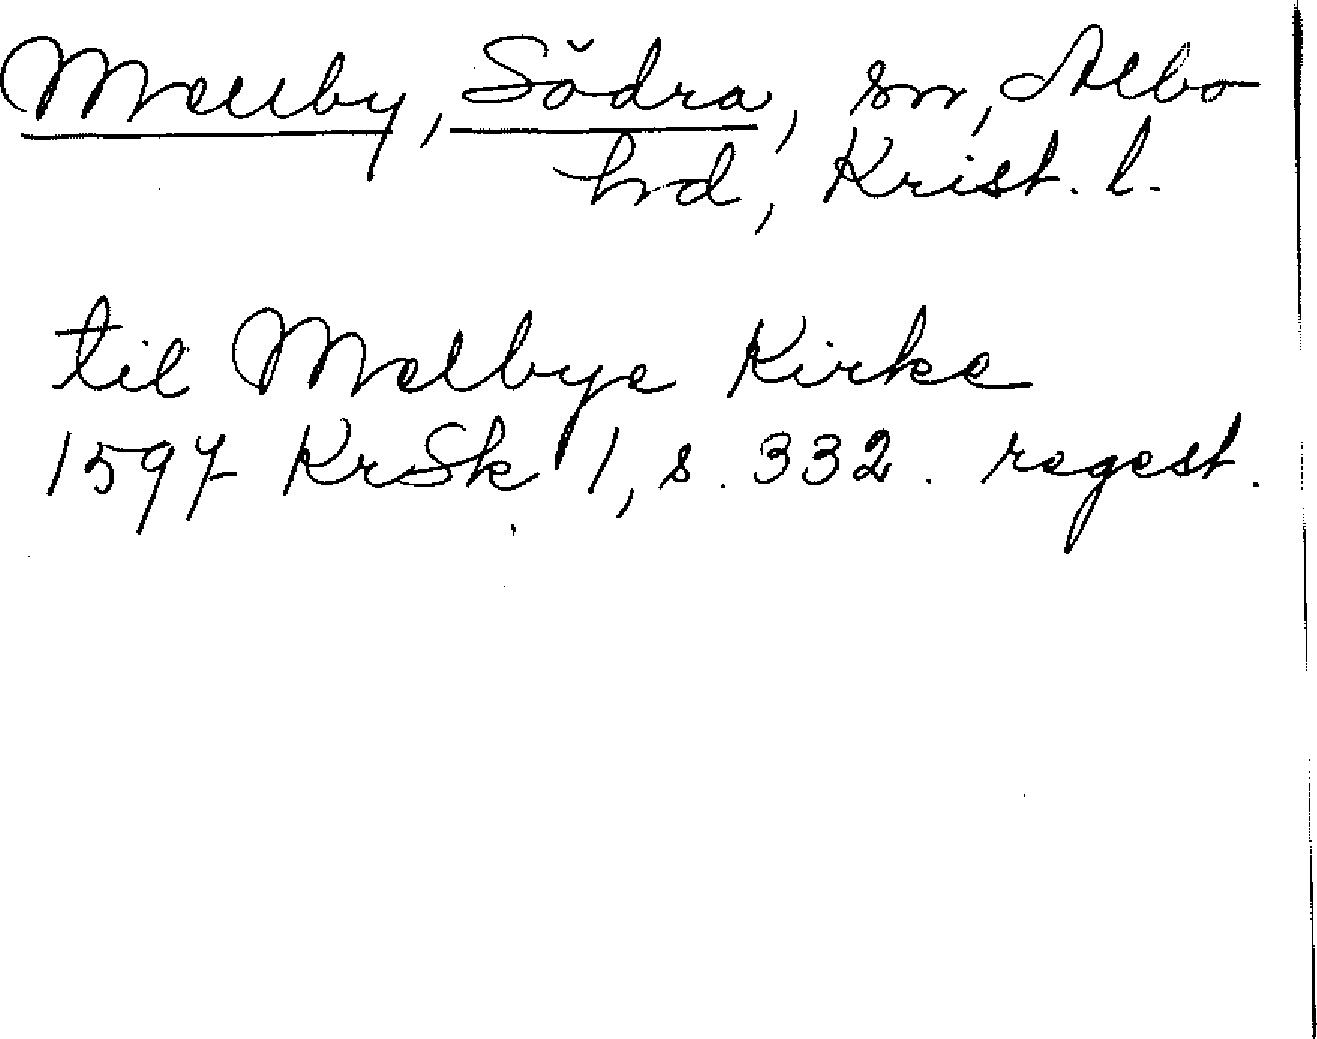 Mellby, Södra, sn, Albo
hd, Krist. l.
til Melbye Kirke
1597 KrSk 1, s. 332. regest.